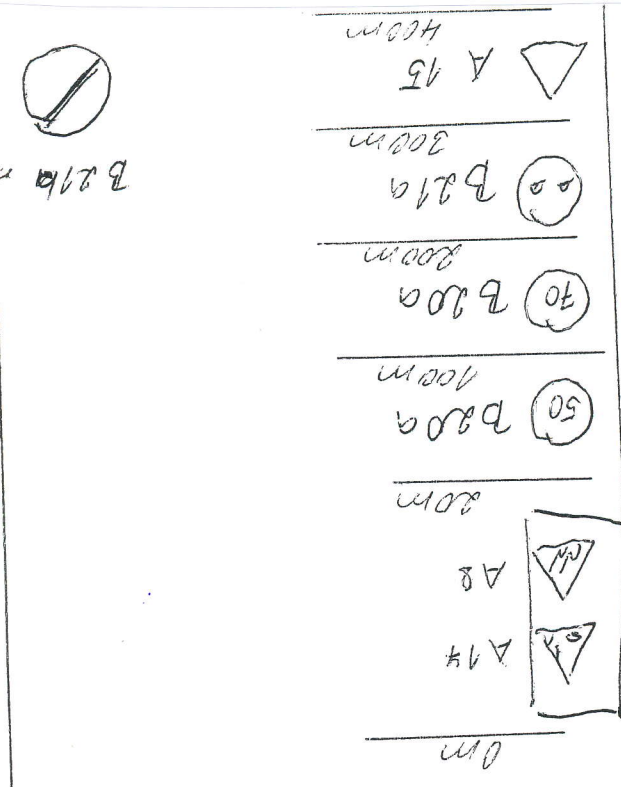 0m
A17
A8
20m
50 B20a
100m
70 B20a
200m
B21a
300m
B21b
A 15
400m